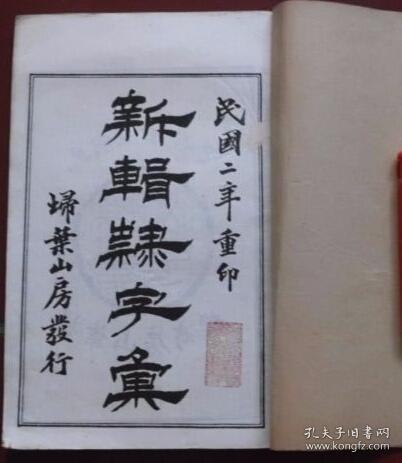 民國二年重印
新輯隸字彙
埽葉山房發行
孔夫子旧书网